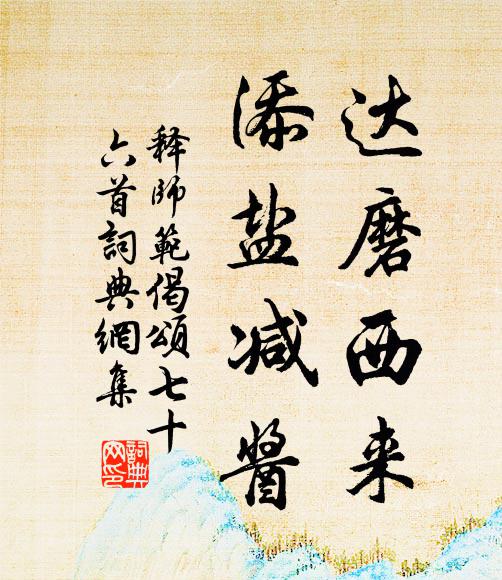 达磨西来
添盐减醬
释師範偈頌七十
六首詞典網集
詞典网印